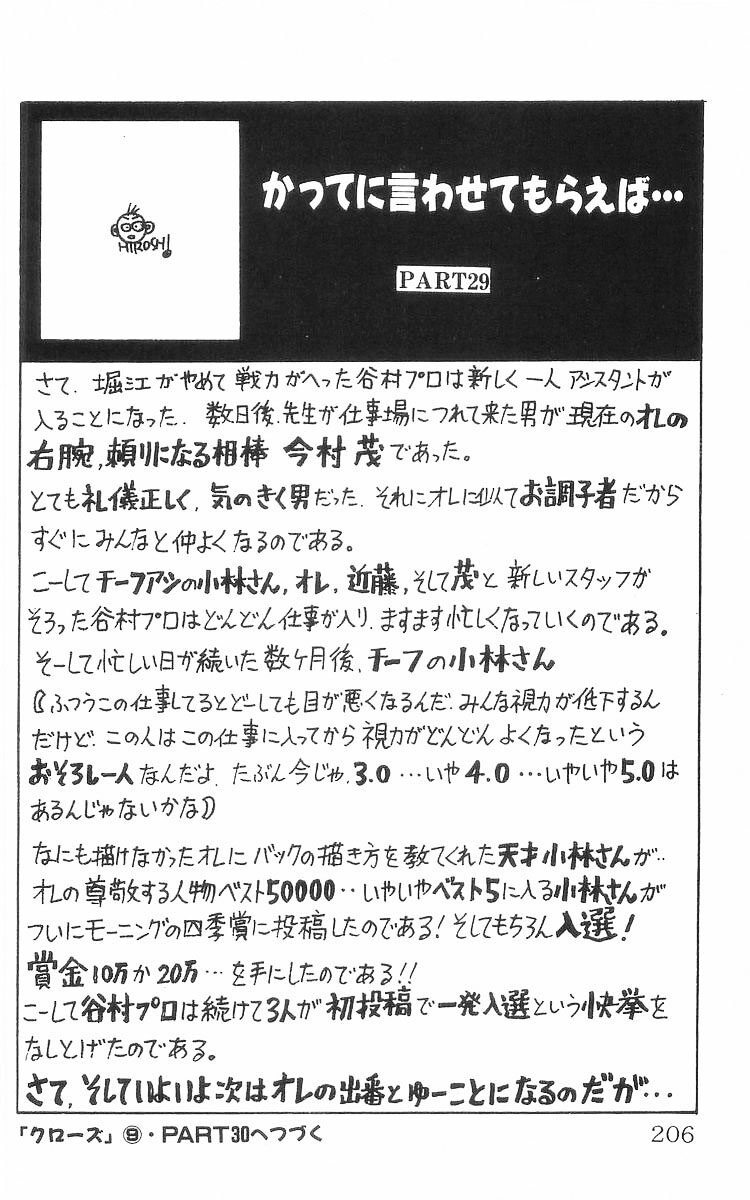 HIROSHI
かってに言わせてもらえば…
PART29
さて、堀江がやめて戦力がへった谷村プロは新しく一人アシスタントが
入ることになった．数日後、先生が仕事場につれて来た男が現在のオレの
右腕，頼りになる相棒 今村茂であった。
とても礼儀正しく，気のきく男だった．それにオレに似てお調子者だから
すぐにみんなと仲よくなるのである。
こーしてチーフアシの小林さん，オレ，近藤，そして茂と新しいスタッフが
そろった谷村プロはどんどん仕事が入り、ますます忙しくなっていくのである。
そーして忙しい日が続いた数ヶ月後、チーフの小林さん
(（ふつうこの仕事してるとどーしても目が悪くなるんだ．みんな視力が低下するん
だけど．この人はこの仕事に入ってから視力がどんどんよくなったという
おそろしー人なんだよ たぶん今じゃ、3.0…いや4.0…いやいや5.0は
あるんじゃないかな)）
なにも描けなかったオレにバックの描き方を教てくれた天才小林さんが‥
オレの尊敬する人物ベスト50000‥いやいやベスト5に入る小林さんが
ついにモーニングの四季賞に投稿したのである！そしてもちろん入選！
賞金10万か20万…を手にしたのである!!
こーして谷村プロは続けて3人が初投稿で一発入選という快挙を
なしとげたのである。
さて，そしていよいよ次はオレの出番とゆーことになるのだが…
「クローズ」⑨・PART30へつづく
206